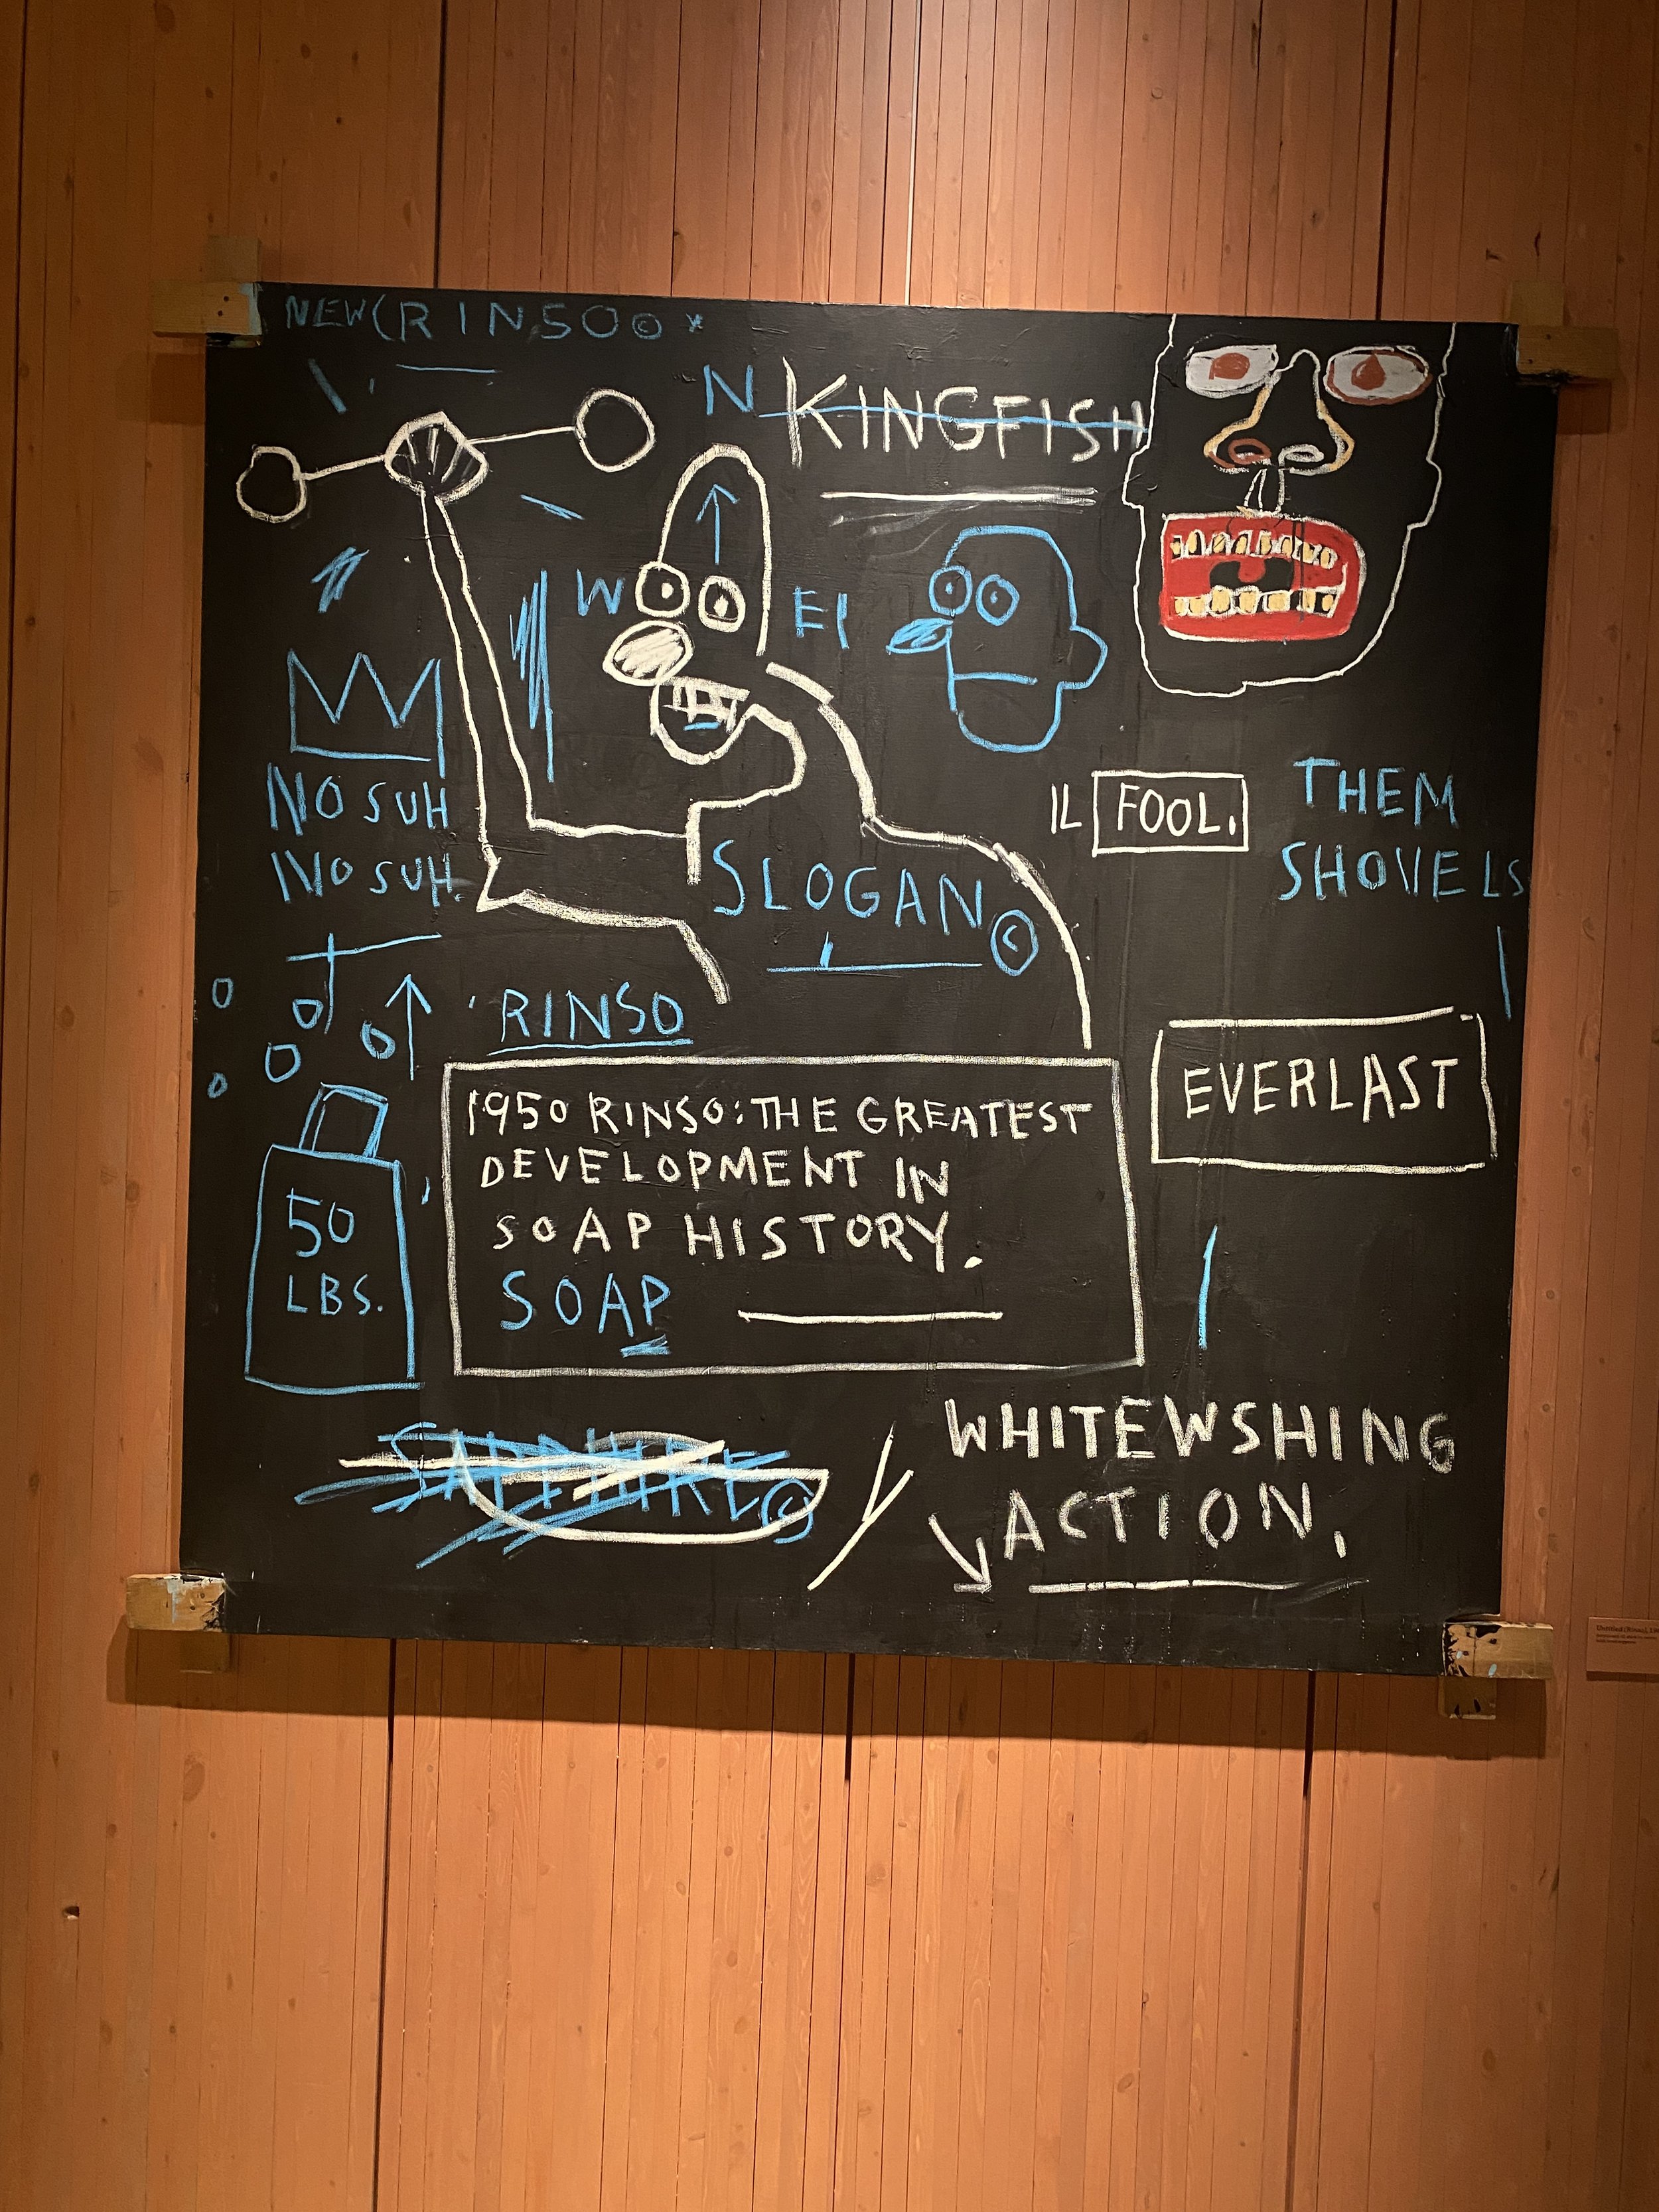 NEW (RINSO © *
N KINGFISH
W EI
NO SUH
NO SUH.
IL FOOL.
THEM
SHOVELS
SLOGAN ©
RINSO
EVERLAST
1950 RINSO: THE GREATEST
DEVELOPMENT IN
SOAP HISTORY.
SOAP
50
LBS.
SAPPHIRE ©
WHITEWSHING
ACTION.